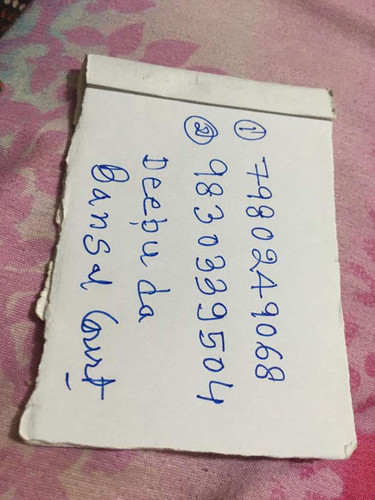 ① 7980249068
② 9830339504
Deepu da
Bansal Court